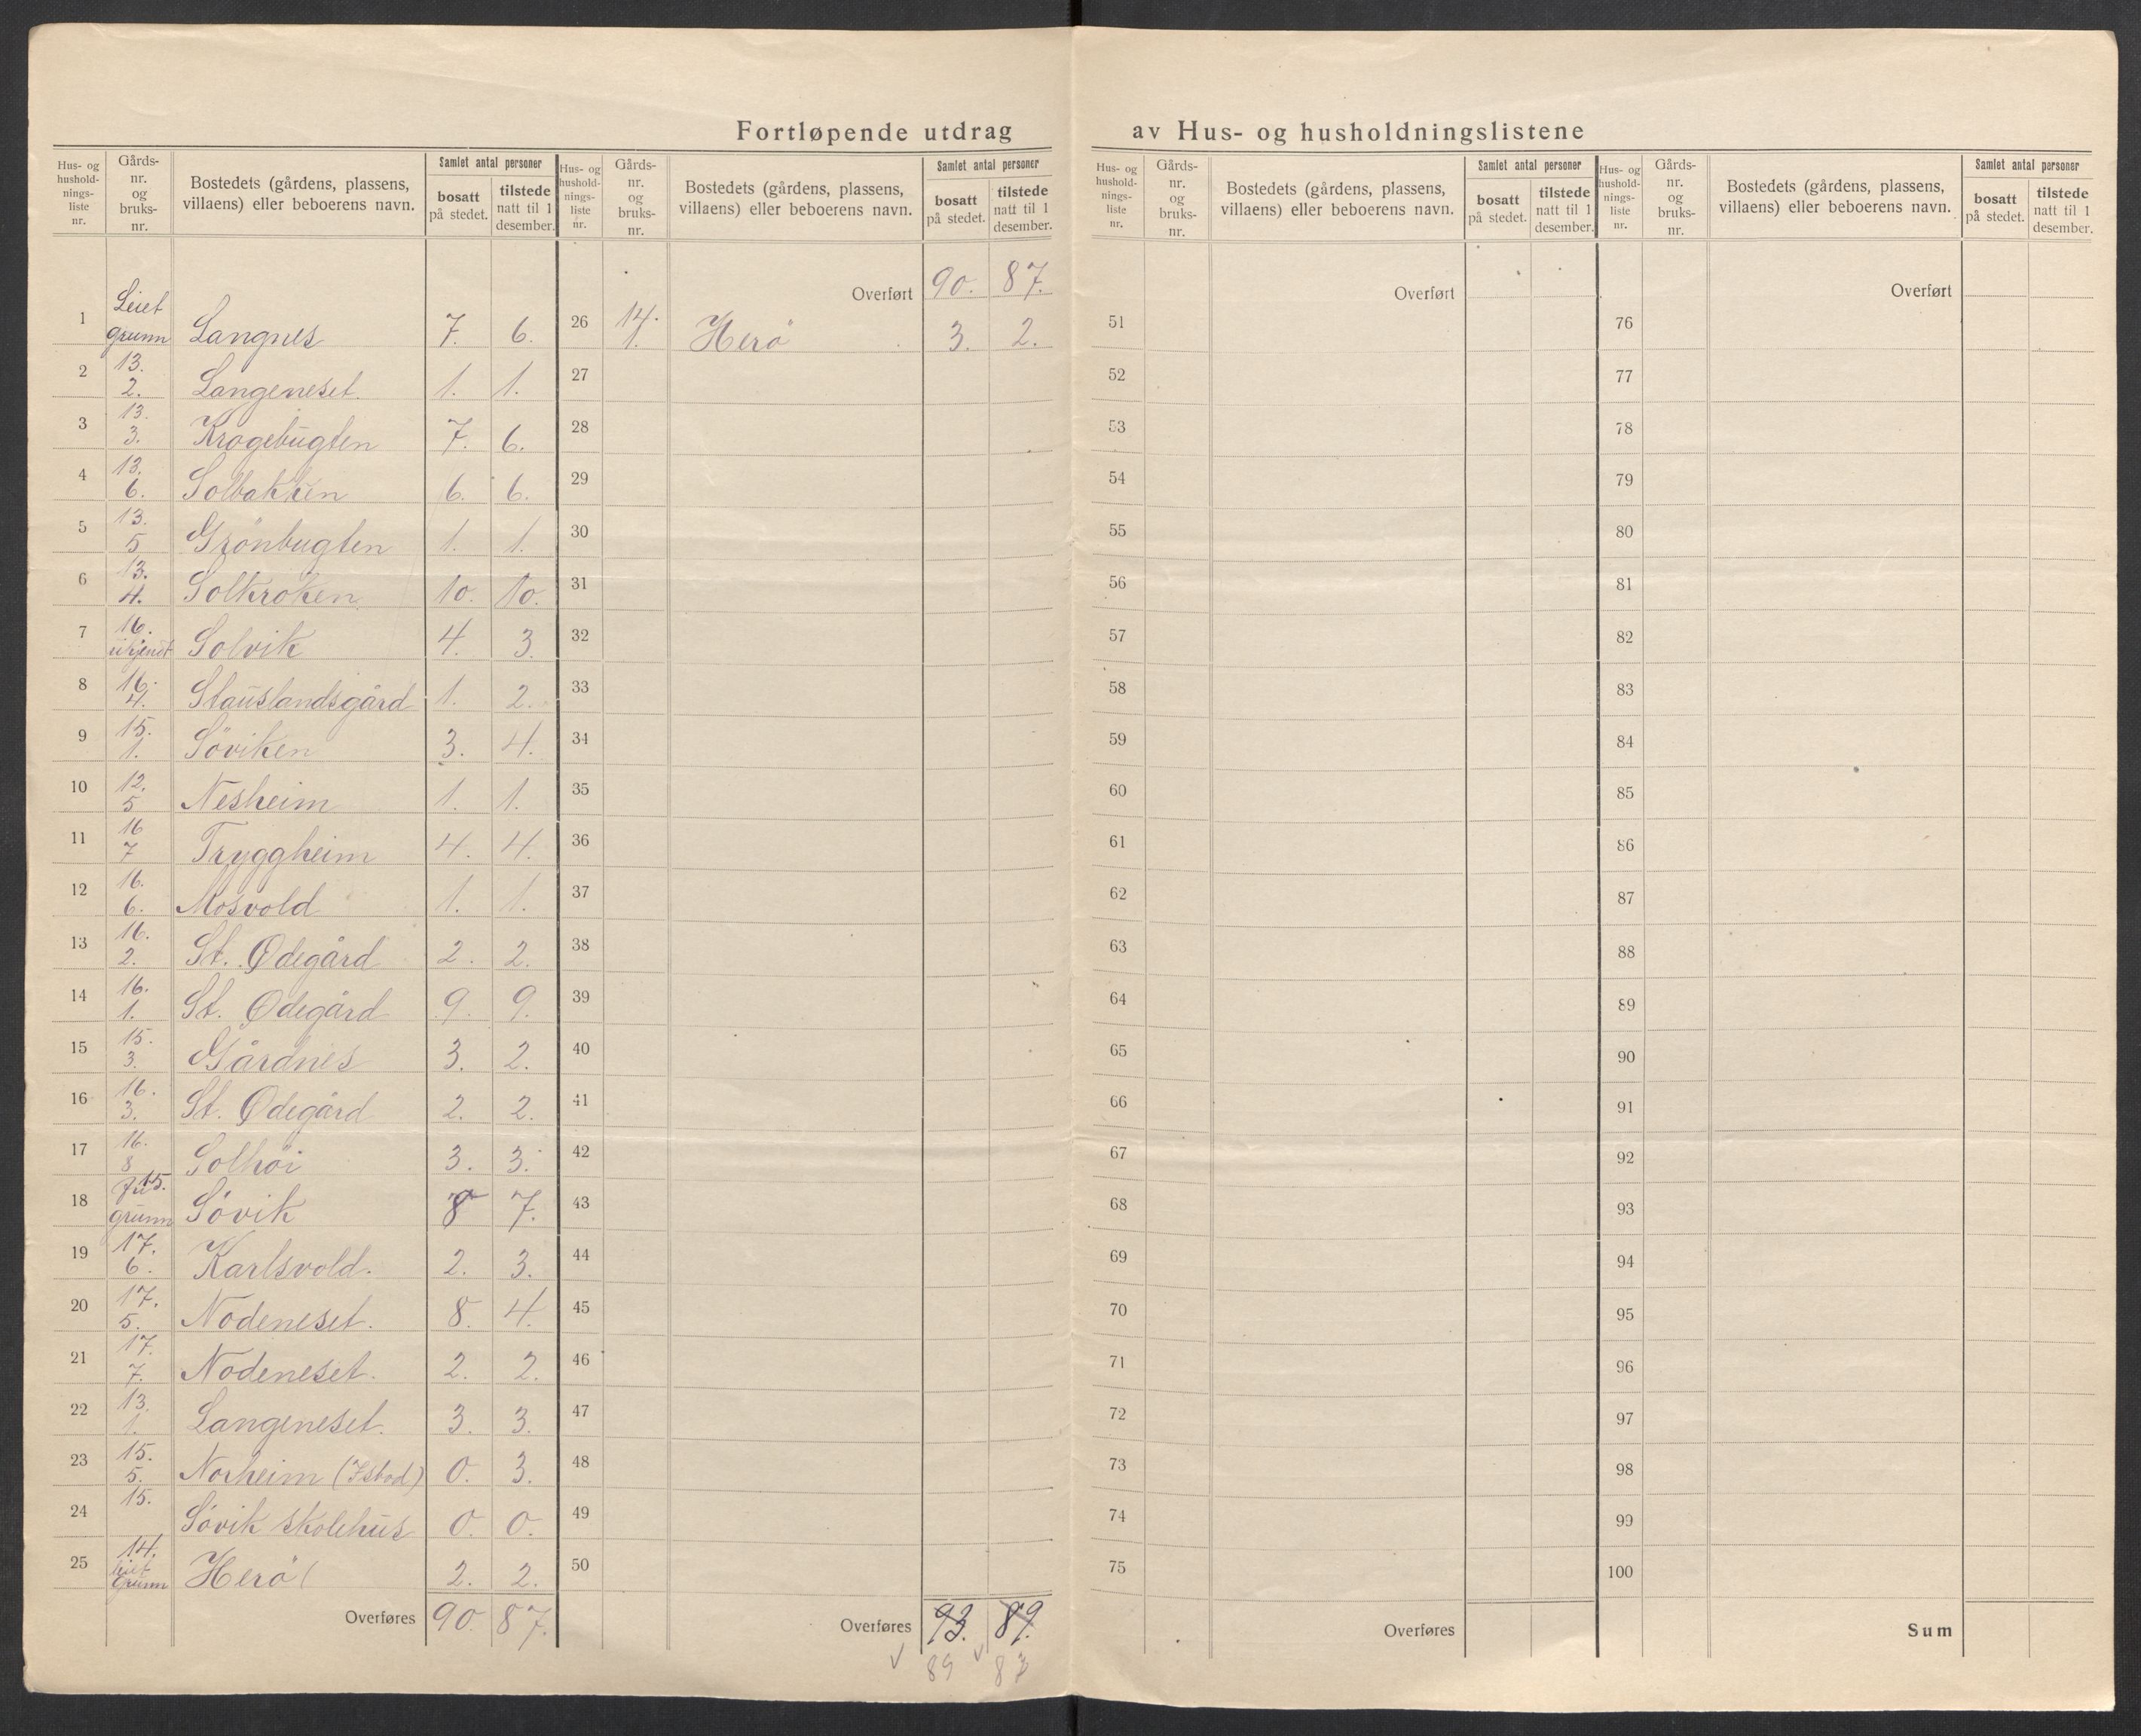 Fortløpende utdrag av Hus- og husholdningslistene
Hus- og hushold-nings-liste nr. Gårds-nr. og bruks-nr. Bostedets (gårdens, plassens, villaens) eller beboerens navn. Samlet antal personer bosatt på stedet. tilstede natt til 1 desember.
1 Leiet grunn Langnes 7. 6.
2 13. 2. Langeneset. 1. 1.
3 13. 3. Krogebugten 7. 6.
4 13. 6. Solbakken 6. 6.
5 13. 5 Grönbugten 1. 1.
6 13. 4. Solkroken 10. 10.
7 16. Solvik 4. 3.
8 16. 4. Stauslandsgård 1. 2.
9 15. 1. Söviken 3. 4.
10 12. 5 Nesheim 1. 1.
11 16 7 Tryggheim 4. 4.
12 16. 6. Mosvold 1. 1.
13 16. 2. St. Ødegård 2. 2.
14 16. 1. St. Ødegård 9. 9.
15 15. 3. Gårdnes 3. 2.
16 16. 3. St. Ødegård 2. 2.
17 16. 8 Solhöi 3. 3.
18 15. grunn Sövik 8 7.
19 17. 6. Karlsvold. 2. 3.
20 17. 5. Nodeneset. 8. 4.
21 17. 7. Nodeneset. 2. 2.
22 13. 1. Langeneset. 3. 3.
23 15. 5. Norheim 0. 3.
24 15. Sövik skolehus 0. 0.
25 14. leiet Grunn Herö 2. 2.
Overføres 90. 87.
Hus- og hushold-nings-liste nr. Gårds-nr. og bruks-nr. Bostedets (gårdens, plassens, villaens) eller beboerens navn. Samlet antal personer bosatt på stedet. tilstede natt til 1 desember.
Overført 90. 87.
26 14. 1. Herö 3. 2.
27
28
29
30
31
32
33
34
35
36
37
38
39
40
41
42
43
44
45
46
47
48
49
50
Overføres 93. 89.
89 87
Hus- og hushold-nings-liste nr. Gårds-nr. og bruks-nr. Bostedets (gårdens, plassens, villaens) eller beboerens navn. Samlet antal personer bosatt på stedet. tilstede natt til 1 desember.
Overført
51
52
53
54
55
56
57
58
59
60
61
62
63
64
65
66
67
68
69
70
71
72
73
74
75
Overføres
Hus- og hushold-nings-liste nr. Gårds-nr. og bruks-nr. Bostedets (gårdens, plassens, villaens) eller beboerens navn. Samlet antal personer bosatt på stedet. tilstede natt til 1 desember.
Overført
76
77
78
79
80
81
82
83
84
85
86
87
88
89
90
91
92
93
94
95
96
97
98
99
100
Sum